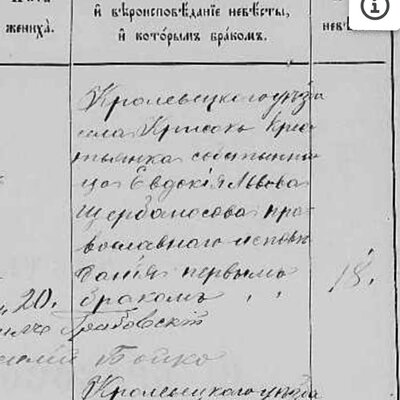 жениха̀.
и҆ вѣроисповѣ́данїе невѣ́сты,
и҆ кото́рымъ бра́комъ.
невѣ́
Кролевецкого уѣзда
села
крес
тьянка собственни
ца Евдокія Львова
Щербаносова пра
вославнаго исповѣ
данія первымъ
бракомъ
18.
20.
Грабовскій
Бойко
Кролевецкого уѣзда